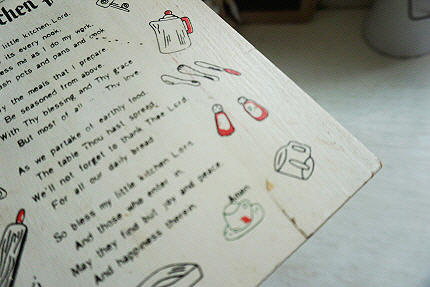 chen
little kitchen Lord
its every nook
ess me as I do my work.
ash pots and pans and cook
y the meals that I prepare
Be seasoned from above.
With Thy blessing and Thy grace
But most of all Thy love
As we partake of earthly food,
The table Thou hast spread,
We'll not forget to thank Thee Lord
For all our daily bread
So bless my little kitchen Lord
And those who enter in
May they find but joy and peace
And happiness therein
Amen